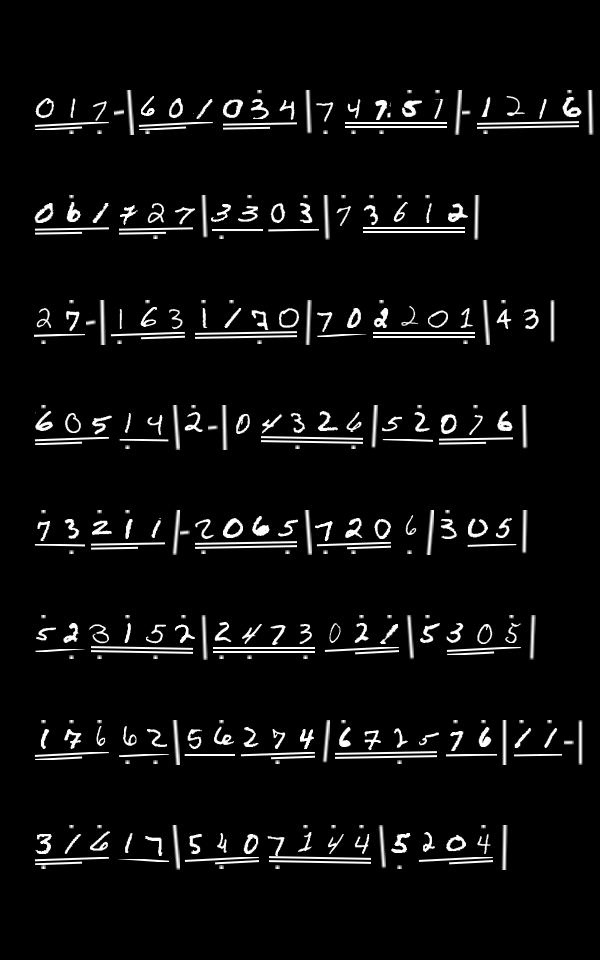 017-|601034|74751|-1216|
061727|3303|73612|
27-|1631170|702201|43|
60514|2-|04326|52076|
73211|-2065|7206|305|
523152|2473021|5305|
17662|56274|672576|11-|
31617|5407144|5204|